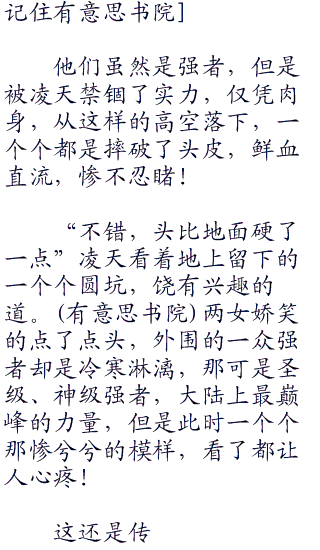 记住有意思书院]
他们虽然是强者，但是
被凌天禁锢了实力，仅凭肉
身，从这样的高空落下，一
个个都是摔破了头皮，鲜血
直流，惨不忍睹！
“不错，头比地面硬了
一点”凌天看着地上留下的
一个个圆坑，饶有兴趣的
道。(有意思书院)两女娇笑
的点了点头，外围的一众强
者却是冷寒淋漓，那可是圣
级、神级强者，大陆上最巅
峰的力量，但是此时一个个
那惨兮兮的模样，看了都让
人心疼！
这还是传